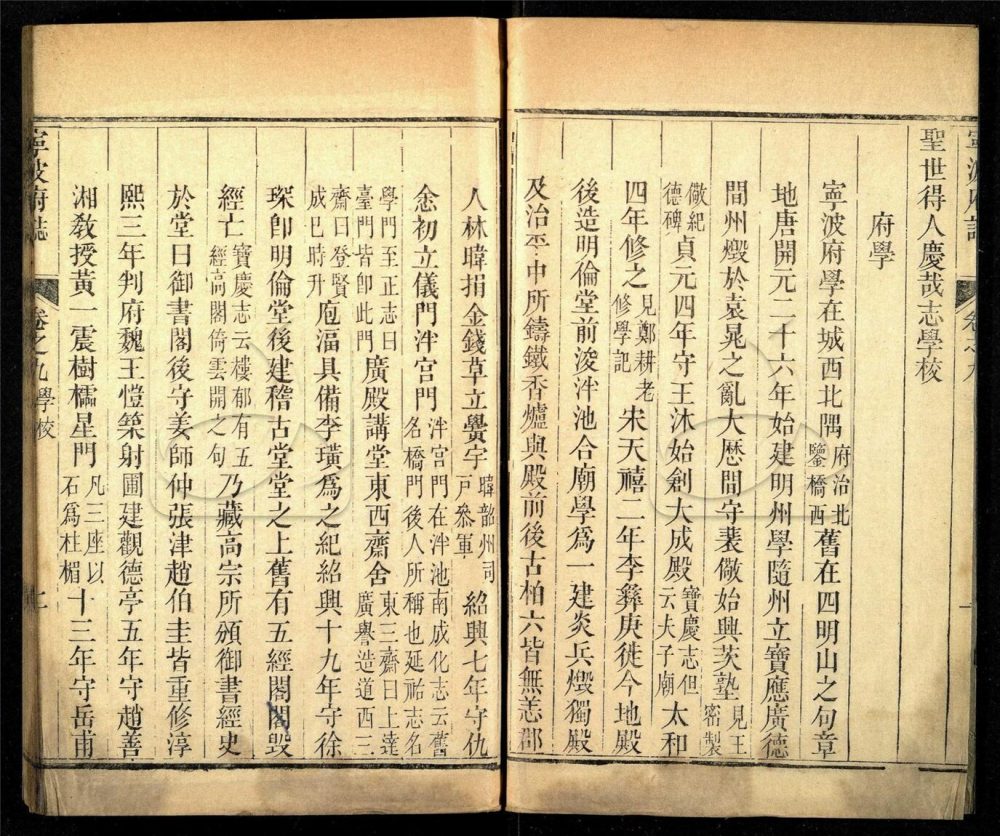 寧波府志 卷之九 一
聖世得人慶哉志學校
府學
寧波府學在城西北隅府治北鑒橋西舊在四明山之句章
地唐開元二十六年始建明州學隨州立寶應廣德
間州燬於袁晁之亂大厯間守裴儆始興茨塾見王密製
儆紀德碑貞元四年守王沐始創大成殿寶慶志但云夫子廟太和
四年修之見鄭耕老修學記宋天禧二年李彝庚徙今地殿
後造明倫堂前浚泮池合廟學爲一建炎兵燬獨殿
及治平中所鑄鐵香爐與殿前後古柏六皆無恙郡
人林暐捐金錢草立黌宇暐韶州司戸叅軍紹興七年守仇
悆初立儀門泮宫門泮宫門在泮池南成化志云舊名橋門後人所稱也延祐志名
學門至正志曰臺門皆卽此門廣殿講堂東西齋舍東三齋曰上達廣譽造道西三
齋曰登賢成巳時升庖湢具備李璜爲之紀紹興十九年守徐
琛卽明倫堂後建稽古堂堂之上舊有五經閣閣毀
經亡寶慶志云樓郁有五經高閣倚雲開之句乃藏高宗所頒御書經史
於堂曰御書閣後守姜師仲張津趙伯圭皆重修淳
熙三年判府魏王愷築射圃建觀德亭五年守趙善
湘敎授黃一震樹櫺星門凡三座以石爲柱楣十三年守岳甫
寧波府誌 卷之九 學校 二